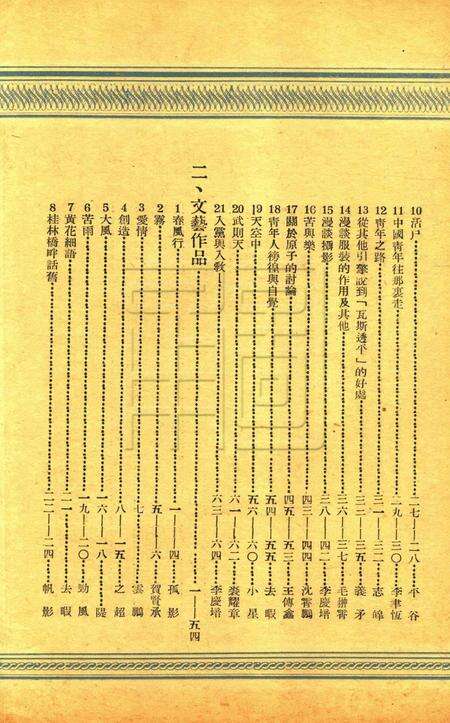 10 活戶……二七——二八 平谷
11 中國青年往那裏走……二九——三〇 李聿恆
12 青年之路……三一——三二 志峰
13 從其他引擎說到「瓦斯透平」的好處……三三——三五 義矛
14 漫談服裝的作用及其他……三六——三七
15 漫談攝影……三八——四二 李慶增
16 苦與樂……四三——四四 沈霄鵬
17 關於原子的討論……四五——五三 王傳鑫
18 青年人徬徨與自覺……五四——五五 去暇
19 天空中……五六——六〇 小星
20 武則天……六一——六二 裴耀章
21 入黨與入教……六三——六四 李慶增
二、文藝作品……一——五四
1 春風行……一——四 孤影
2 霧……五——六 賀賢承
3 愛情……七 雲鵬
4 創造……八——一五 之超
5 大風……一六——一八
6 苦雨……一九——二〇 勁風
7 黃花細語……二一 去暇
8 桂林橋畔話舊……二二——二四 帆影